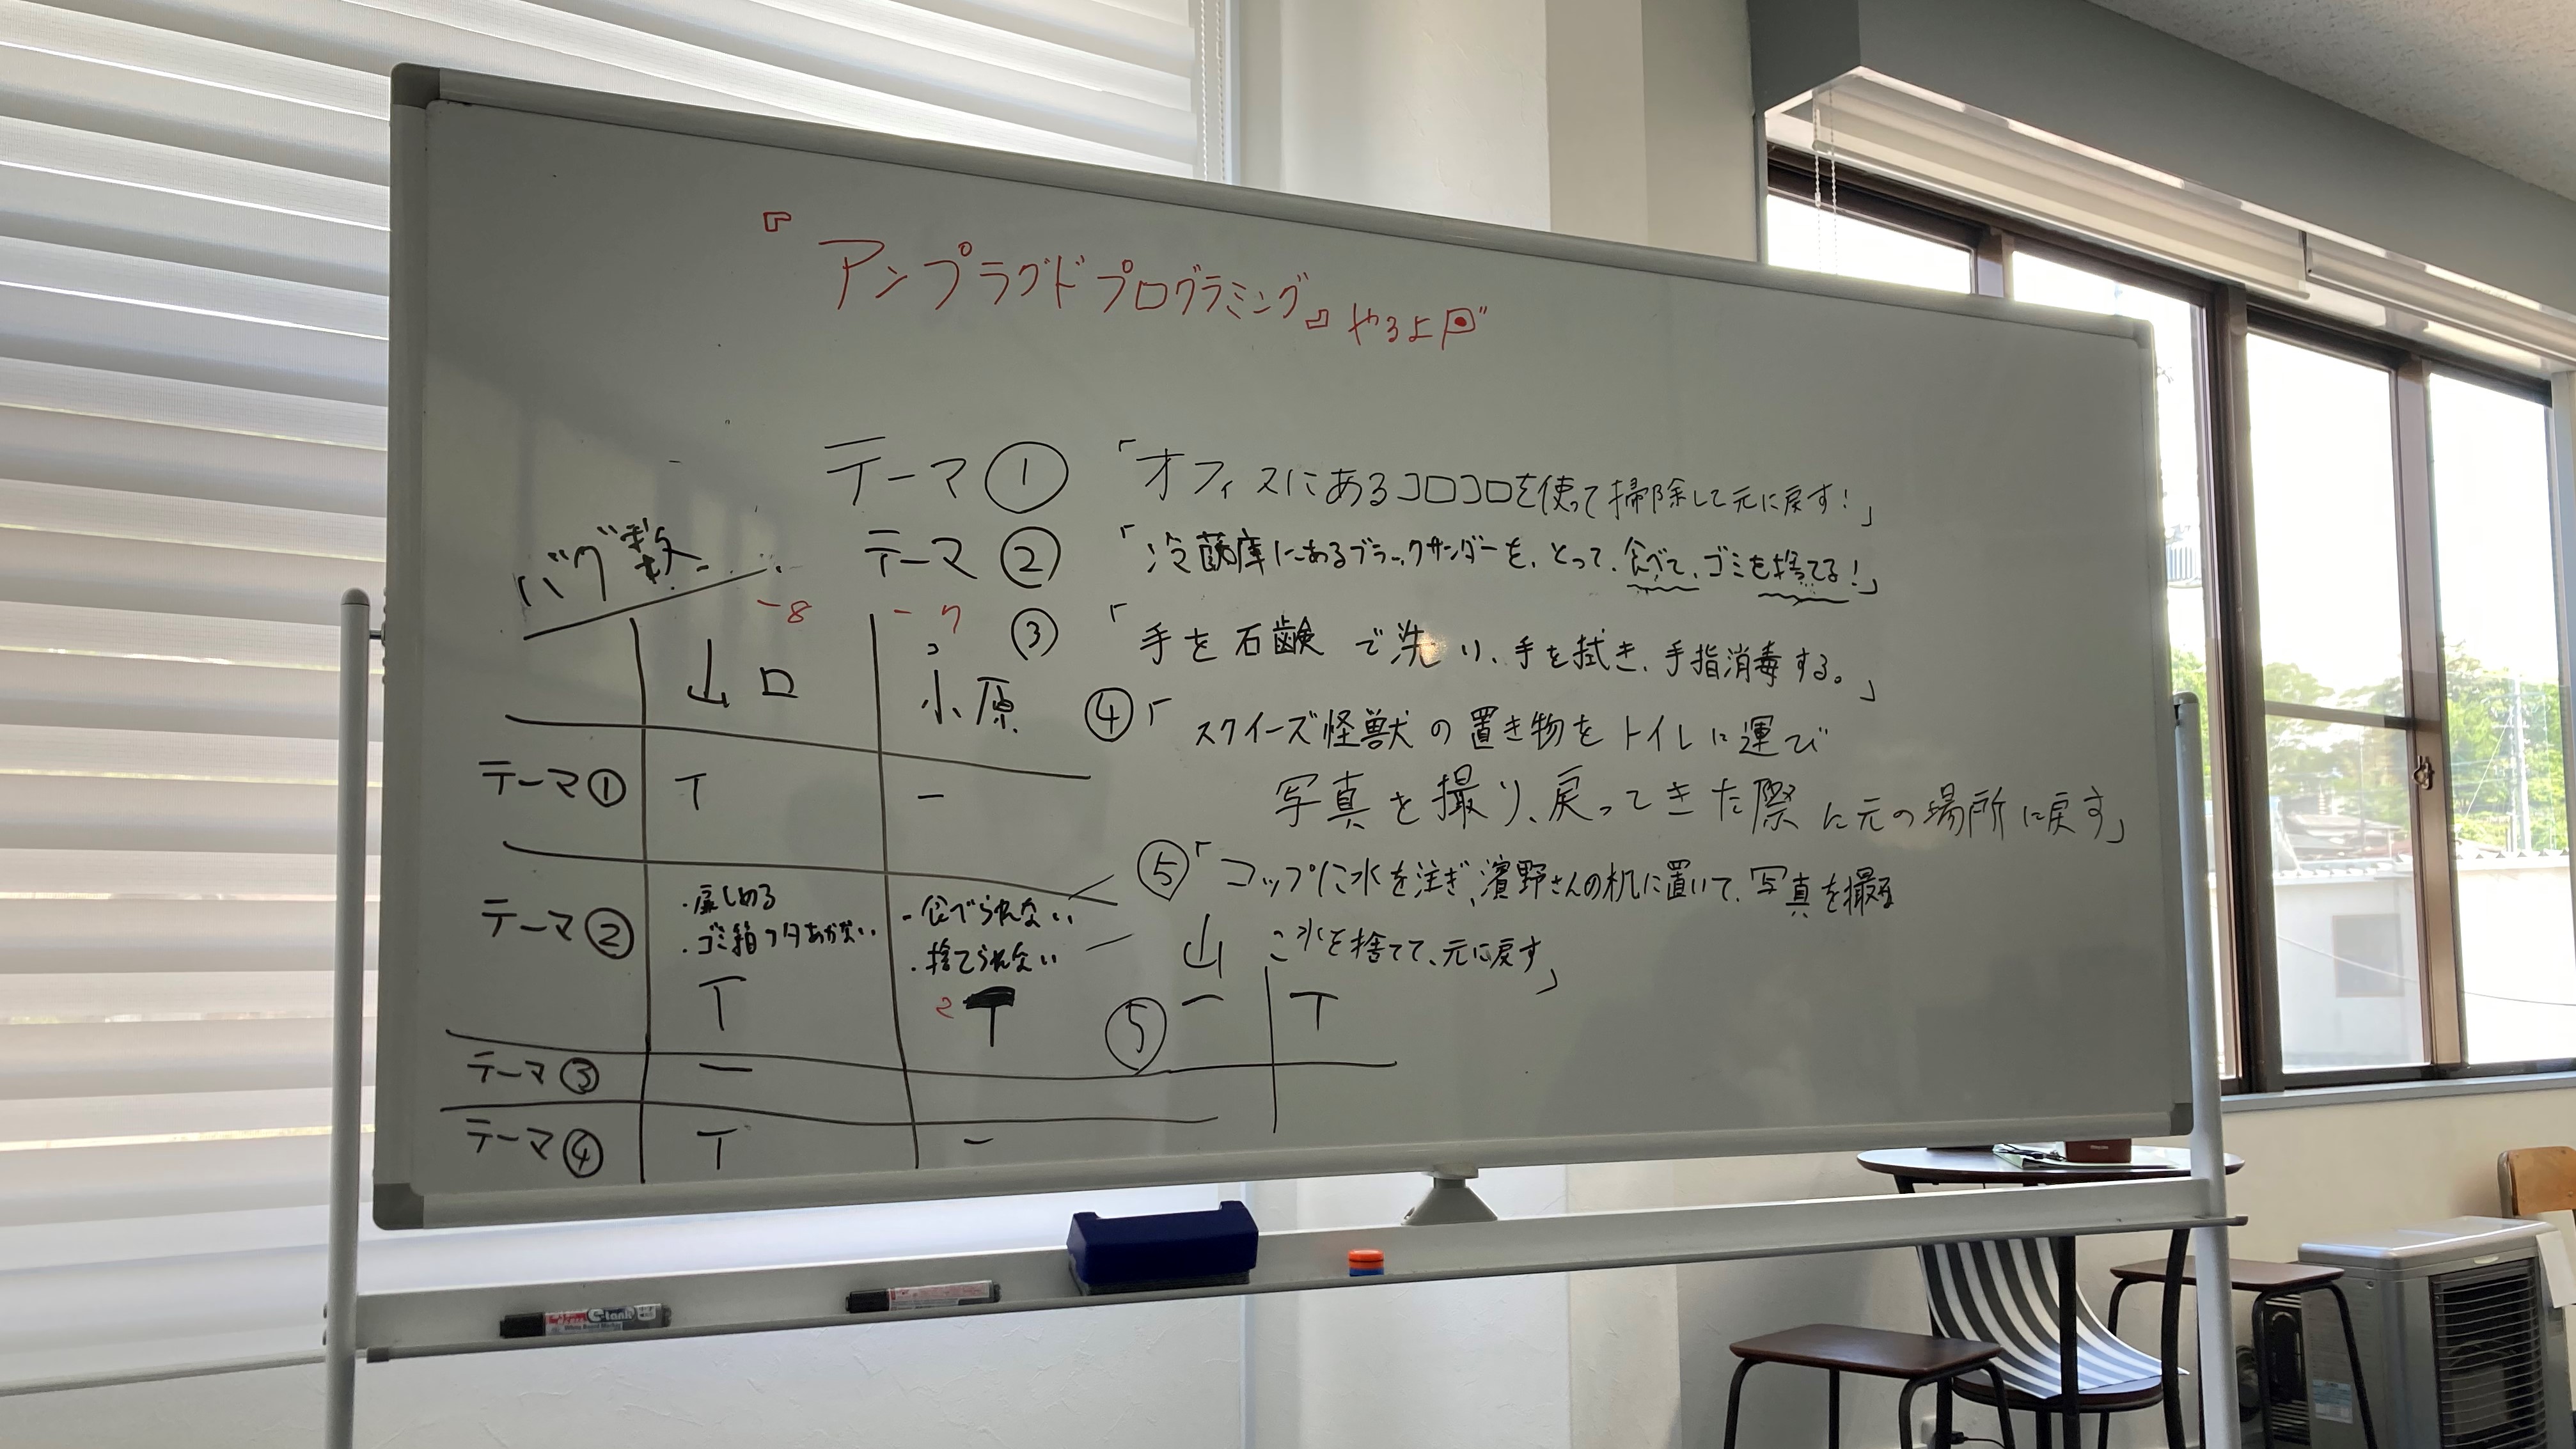 『アンプラグドプログラミング』やるよ
テーマ① 「オフィスにあるコロコロを使って掃除して元に戻す!」
テーマ② 「冷蔵庫にあるブラックサンダーを、とって、食べて、ゴミを捨てる!」
③ 「手を石鹸で洗い、手を拭き、手指消毒する。」
④「スクイーズ怪獣の置き物をトイレに運び
写真を撮り、戻ってきた際に元の場所に戻す」
⑤「コップに水を注ぎ、濱野さんの机に置いて、写真を撮る
水を捨てて、元に戻す」
バグ数
-8 -7
山口 小原
テーマ① T ー
テーマ②
・ゴミ箱フタあかない
T
・食べられない
・捨てられない
2 T
テーマ③ ー
テーマ④ T ー
山
⑤ ー T
C-tank